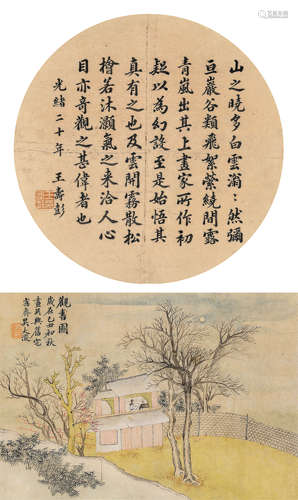 山之曉多白雲滃〻然彌
亘巖谷類飛絮縈繞間露
青嵐出其上畫家所作初
疑以為幻設至是始悟其
真有之也及雲開霧散松
檜若沐灝氣之來洽人心
目亦奇觀之甚偉者也
光緒二十年 王壽彭
觀書圖
歲在乙丑初秋